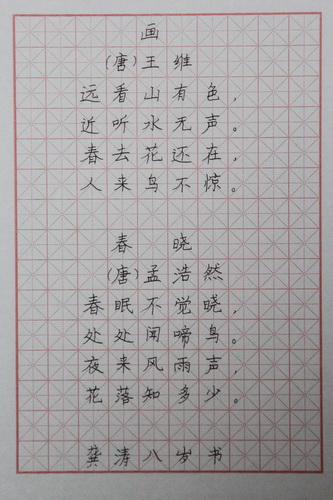 画
(唐)王维
远看山有色,
近听水无声。
春去花还在,
人来鸟不惊。
春晓
(唐)孟浩然
春眠不觉晓,
处处闻啼鸟。
夜来风雨声,
花落知多少。
龚清八岁书